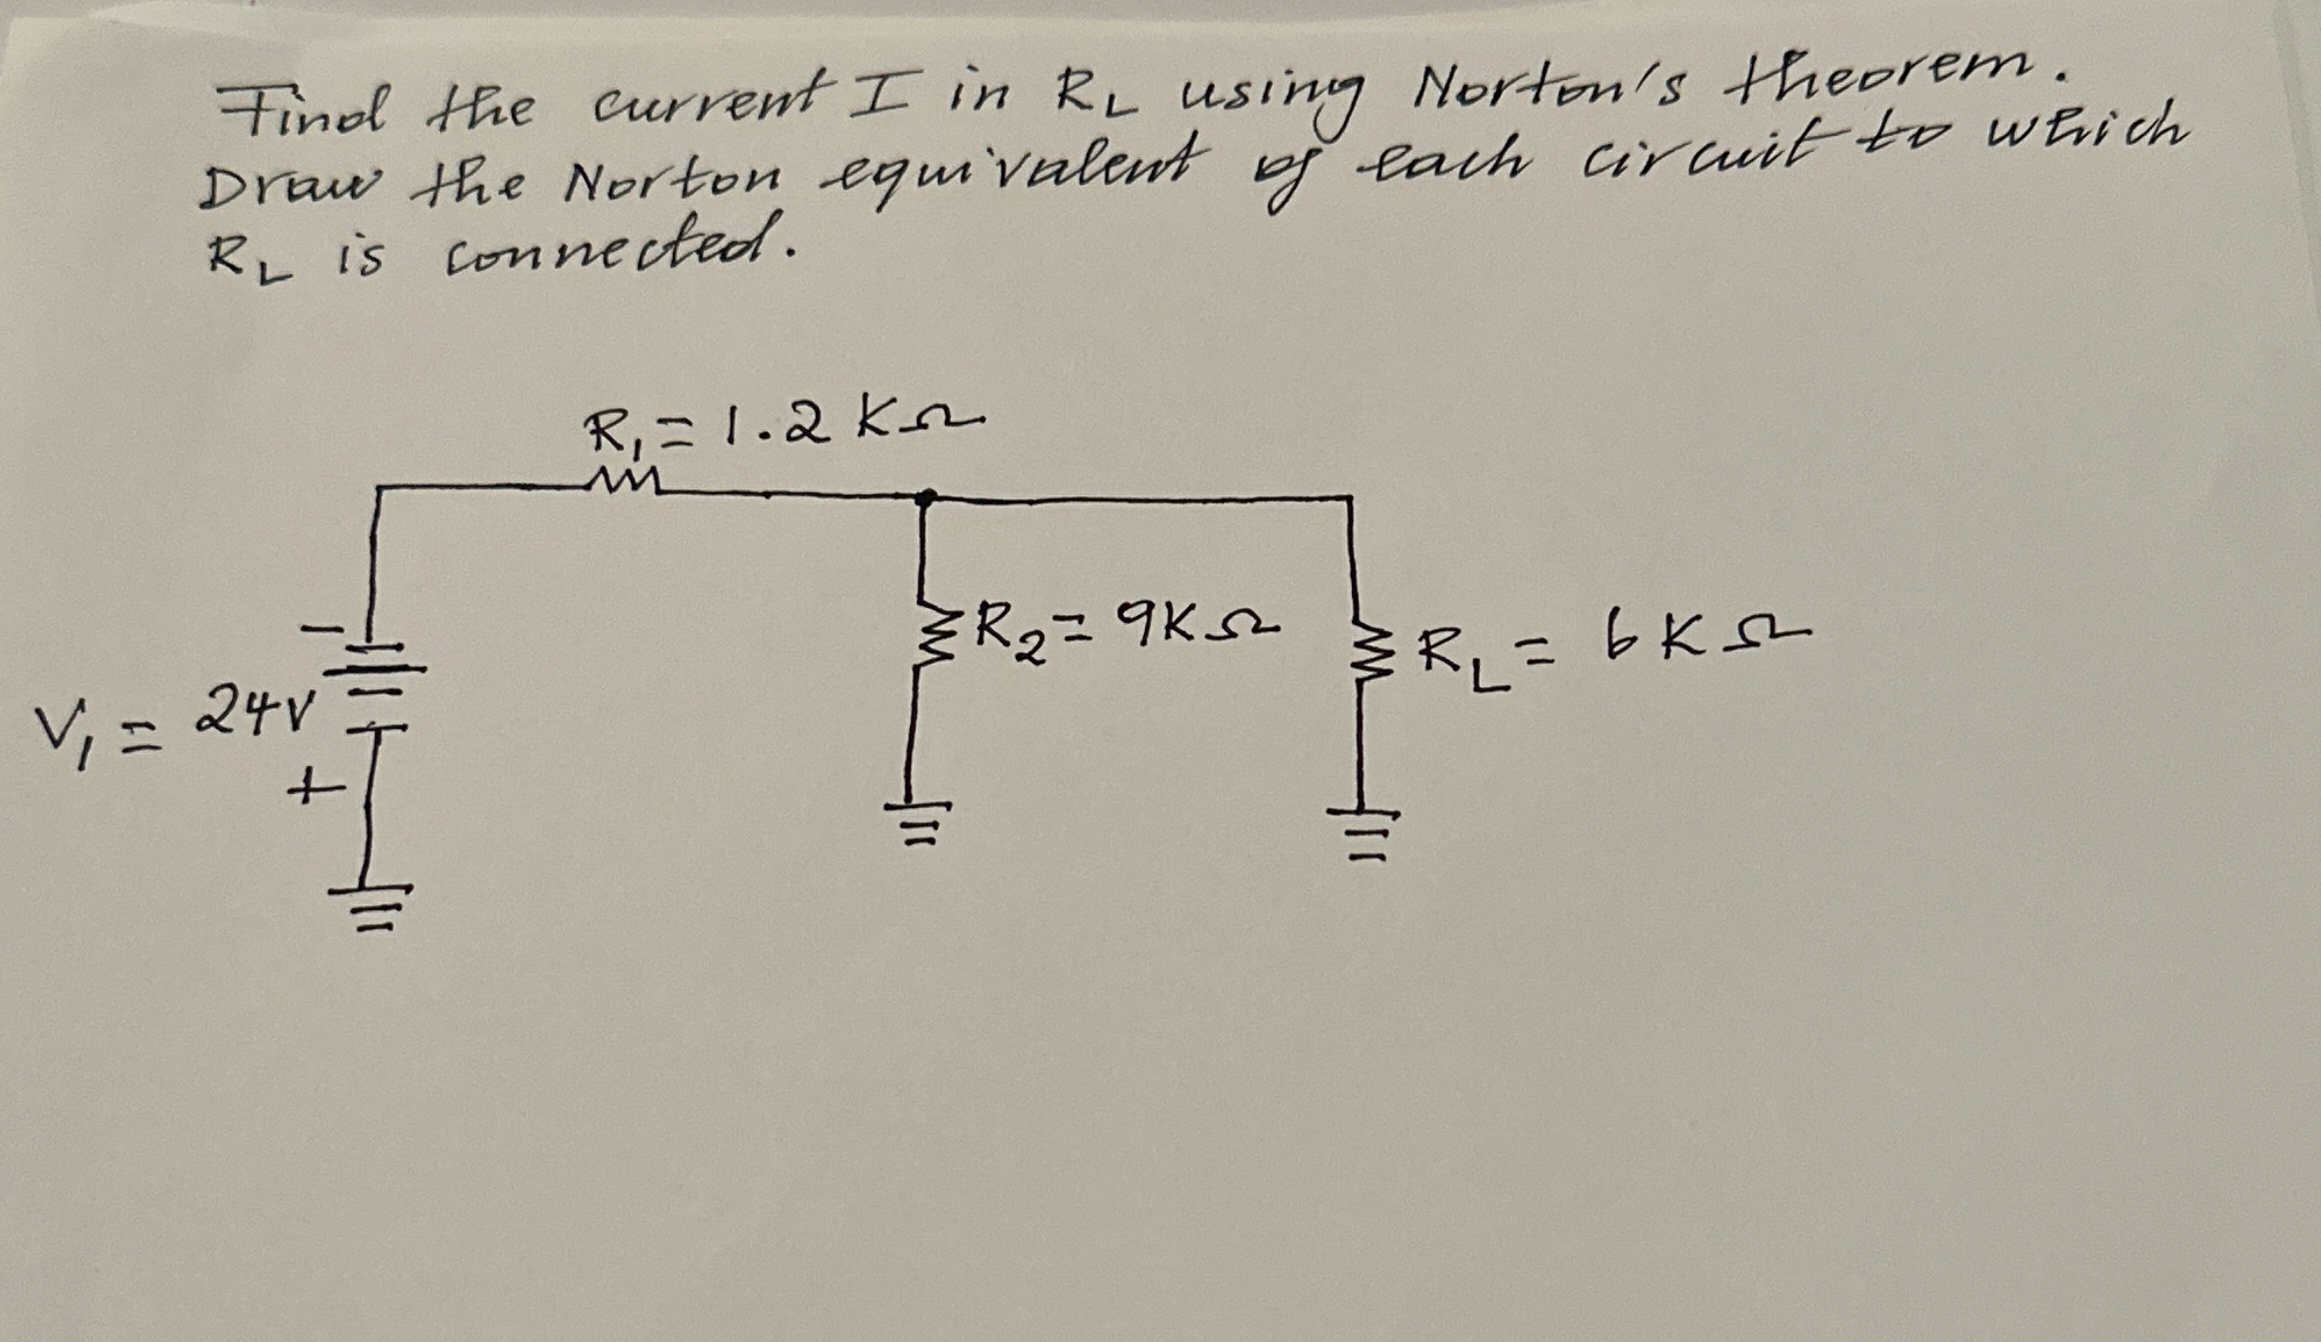 Find the current I in RL using Norton's theorem.
Draw the Norton equivalent of each circuit to which
RL is connected.
R1 = 1.2 KΩ
R2 = 9KΩ
RL = 6KΩ
-
V1 = 24V
+